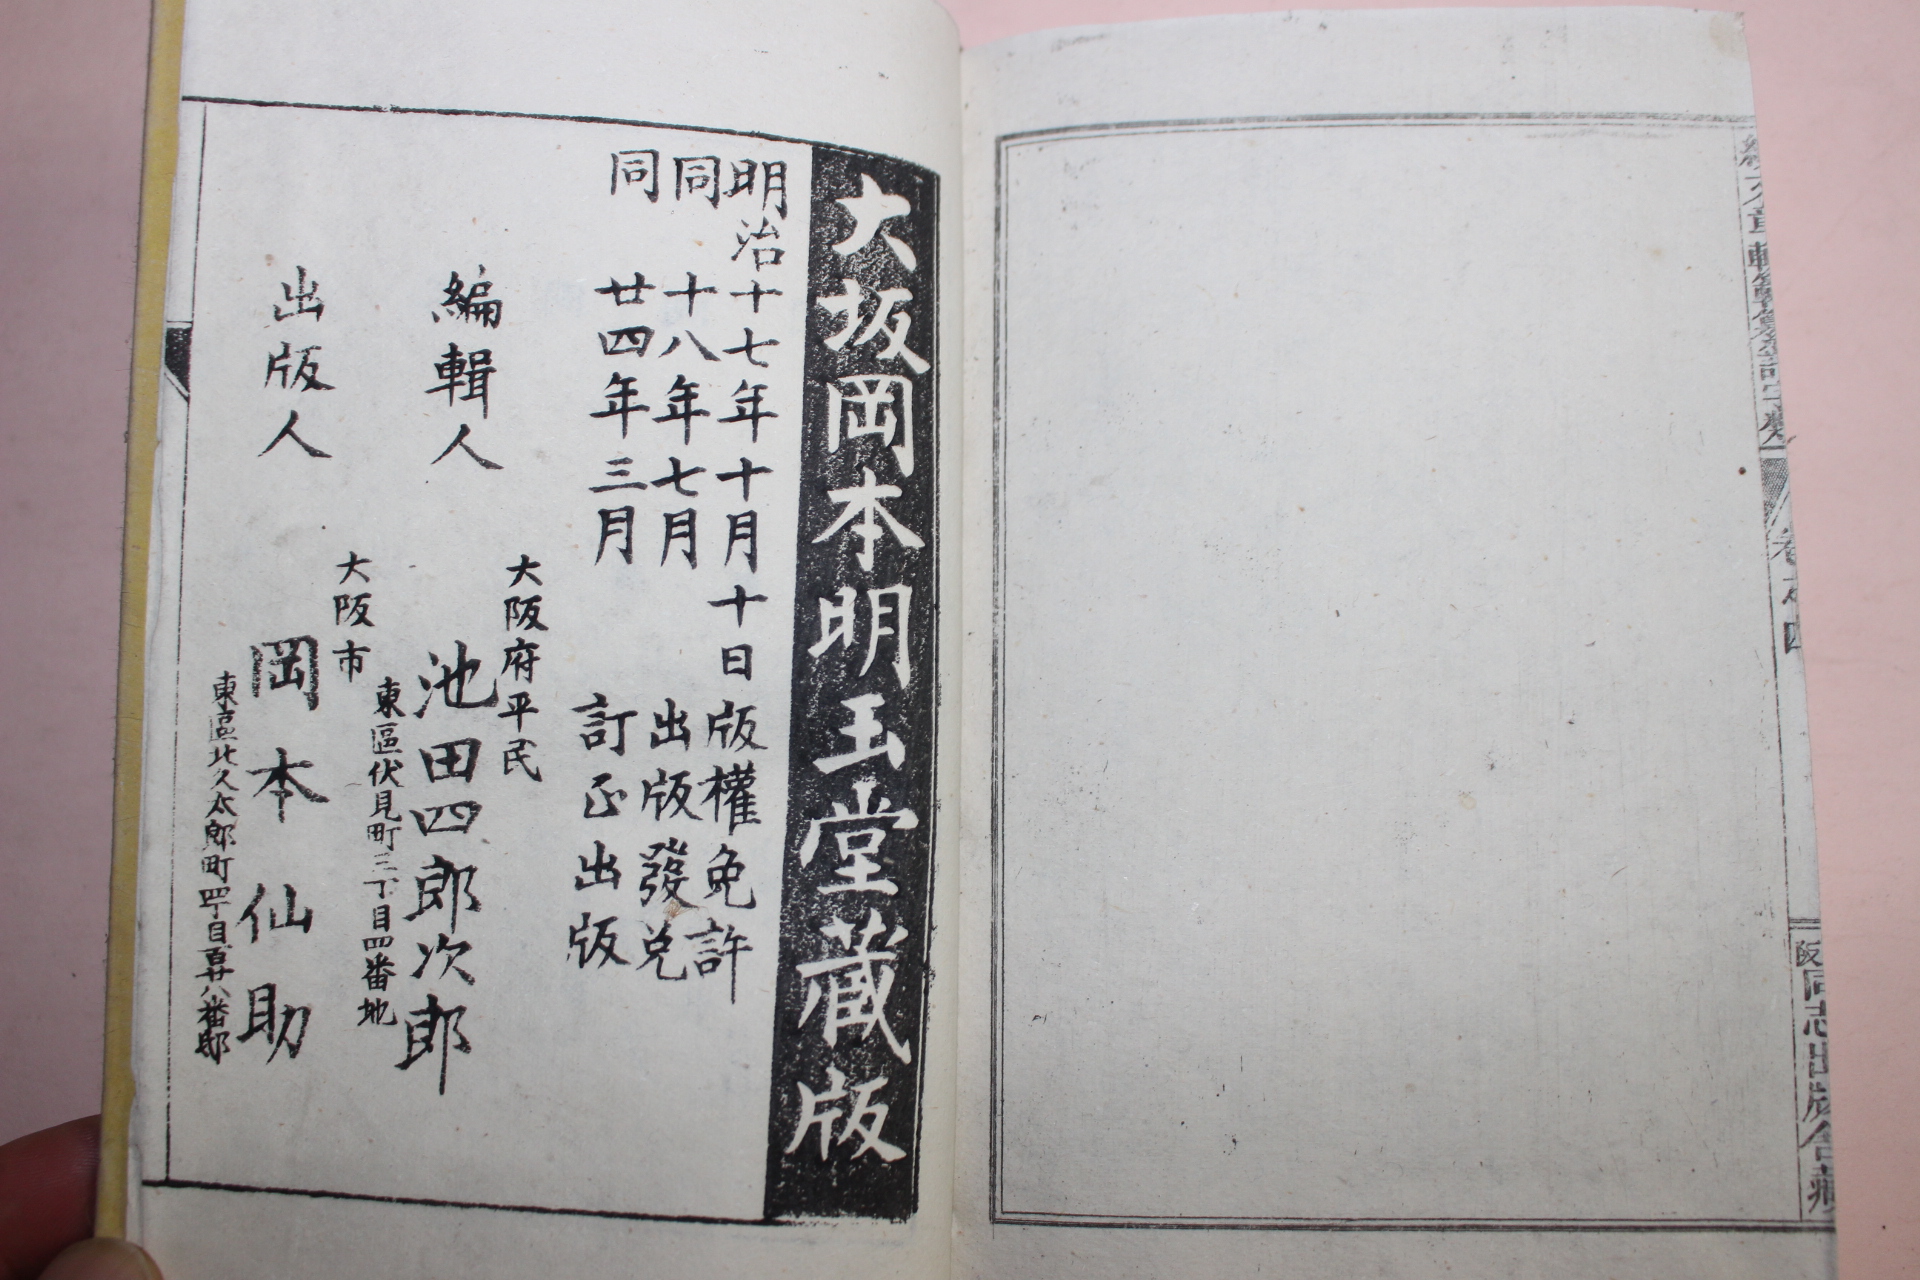 卷之四
阪同志出版舎藏
大坂岡本明玉堂蔵版
明治十七年十月十日版權免許
同十八年七月出版發兌
同廿四年三月訂正出版
大阪府平民
編輯人 池田四郎次郎
東區伏見町三丁目四番地
大阪市
出版人 岡本仙助
東區北久太郎町四丁目百廿八番邸